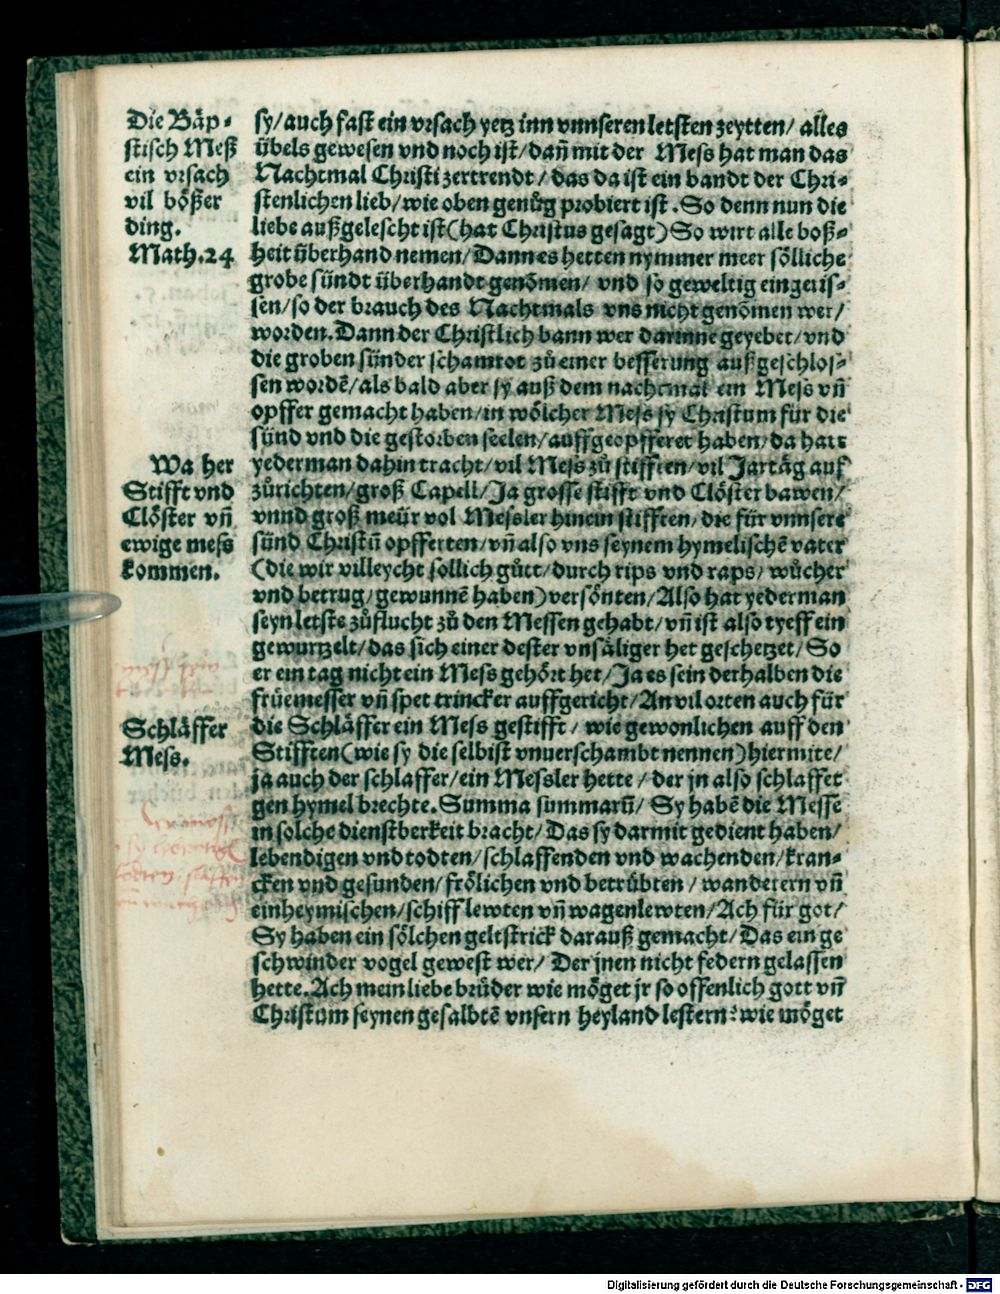 Die Bäp⸗
stisch Meß
ein vrsach
vil bößer
ding.
Math.24
sy/auch fast ein vrsach yetz inn vnnseren letsten zeytten/ alles
übels gewesen vnd noch ist/dañ mit der Mess hat man das
Nachtmal Christi zertrendt/das da ist ein bandt der Chri⸗
stenlichen lieb/wie oben genůg probiert ist. So denn nun die
liebe außgelescht ist(hat Christus gesagt)So wirt alle boß⸗
heit überhand nemen/Dann es hetten nymmer meer sölliche
grobe sündt überhandt genõmen/ vnd so geweltig eingeris⸗
sen/so der brauch des Nachtmals vns nicht genõmen wer/
worden. Dann der Christlich bann wer darinne geyebet/vnd
die groben sünder schamrot zů einer besserung außgeschlos⸗
sen wordẽ/als bald aber sy auß dem nachtmal ein Mess vñ
opffer gemacht haben/in wölcher Mess sy Christum für die
sünd vnd die gestorben seelen/auffgeopfferet haben/da hatt
Wa her
Stifft vnd
Clöster vñ
ewige mess
kommen.
yederman dahin tracht/vil Mess zů stifften/vil Jartäg auf
zůrichten/groß Capell/Ja grosse stifft vnd Clöster bawen/
vnnd groß meür vol Messler hinein stifften/die für vnnsere
sünd Christũ opfferten/vñ also vns seynem hymelischẽ vater
(die wir villeycht sollich gůtt/durch rips vnd raps/wůcher
vnd betrug/gewunnẽ haben)versönten/Also hat yederman
seyn letste zůflucht zů den Messen gehabt/vñ ist also tyeff ein
gewurtzelt/das sich einer dester vnsäliger het geschetzet/So
er ein tag nicht ein Mess gehört het/Ja es sein derhalben die
früemesser vñ spet trincker auffgericht/An vil orten auch für
Schläffer
Mess.
die Schläffer ein Mess gestifft/ wie gewonlichen auff den
Stifften(wie sy die selbist vnuerschambt nennen)hiermite/
ja auch der schlaffer/ein Messler hette/der jn also schlaffet
gen hymel brechte. Summa summarũ/ Sy habẽ die Messe
in solche dienstberkeit bracht/Das sy darmit gedient haben/
lebendigen vnd todten/schlaffenden vnd wachenden/kran⸗
cken vnd gesunden/frölichen vnd betrübten/wanderern vñ
einheymischen/schifflewten vñ wagenlewten/Ach für got/
Sy haben ein sölchen geltstrick darauß gemacht/Das ein ge
schwinder vogel gewest wer/ Der jnen nicht federn gelassen
hette. Ach mein liebe brüder wie möget jr so offenlich gott vñ
Christum seynen gesalbtẽ vnsern heyland lestern: wie möget
Digitalisierung gefördert durch die Deutsche Forschungsgemeinschaft - DFG